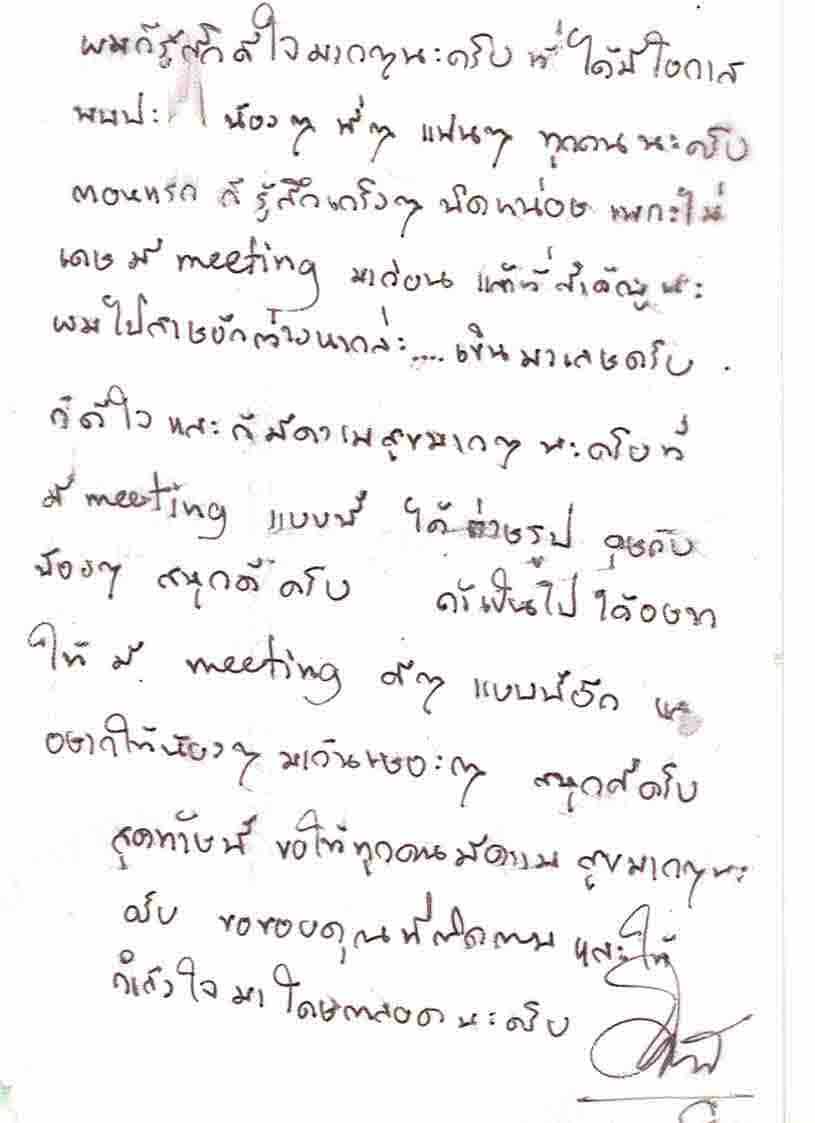 ผมก็รู้สึกดีใจมากๆนะครับ ที่ได้มีโอกาส
พบปะ น้องๆ พี่ๆ แฟนๆ ทุกคน นะครับ
ตอนแรก ก็ รู้สึกเกร็งๆ นิดหน่อย เพราะไม่
เคย มี meeting มาก่อน แต่ที่สำคัญ นะ
ผมไปสายอีกต่างหากล่ะ.... เขินมาเลยครับ .
ก็ดีใจ และ ก็มีความสุขมากๆ นะครับที่
มี meeting แบบนี้ ได้ ถ่ายรูป คุยกับ
น้องๆ สนุกดี ครับ ถ้าเป็นไปได้อยาก
ให้ มี meeting ดีๆ แบบนี้อีก และ
อยากให้น้องๆ มากันเยอะๆ สนุกดีครับ
สุดท้ายนี้ ขอให้ทุกคนมีความ สุขมากๆนะ
ครับ ขอขอบคุณที่ติดตาม และให้
กำลังใจ มา โดยตลอด นะครับ